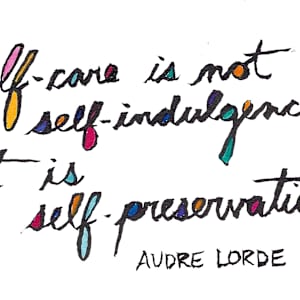 lf-care is not
self-indulgenc
t is
self-preservati
AUDRE LORDE